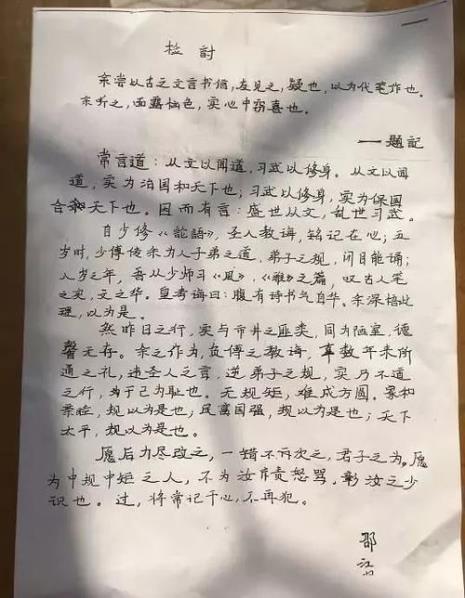 检討
余尝以古之文言书信,友见之,疑也,以为代笔作也。
余听之,面露怡色,实心中窃喜也。
——题记
常言道:从文以闻道,习武以修身。从文以闻
道,实为治国和天下也;习武以修身,实为保国
合和天下也。因而有言:盛世从文,乱世习武。
自少修《論語》,圣人教诲,铭记在心;五
岁时,少傅传余为人子弟之道,弟子之规,闭目能诵;
八岁之年,吾从少师习《风》,《雅》之篇,叹古人笔
之实,文之华。皇考诲曰:腹有诗书气自华。余深悟此
理,以为是。
然昨日之行,实与市井之匪类,同为陋室,德
馨无存。余之作为,负傅之教诲,辜数年来所
通之礼,违圣人之言,逆弟子之规,实乃不道
之行,为于己为耻也。无规矩,难成方圆。家和
亲睦,规以为是也;民富国强,规以为是也;天下
太平,规以为是也。
愿后力尽改之,一错不再次之,君子之为。愿
为中规中矩之人,不为汝斥责怒骂,彰汝之少
识也。过,将常记于心,不再犯。
邵